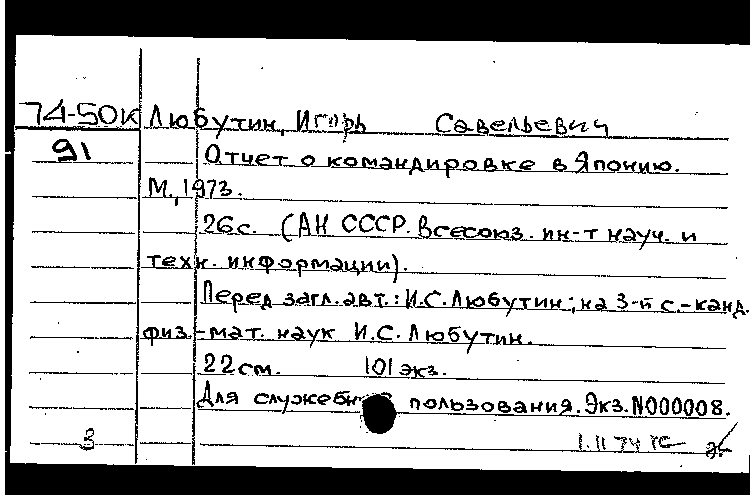 74-50к Любутин, Игорь Савельевич
91 Отчет о командировке в Японию.
М., 1973.
26с. (АН СССР. Всесоюз. ин-т науч. и
техн. информации).
Перед загл. авт.: И.С. Любутин; на 3-й с.-канд.
физ.-мат. наук И.С. Любутин.
22см. 101 экз.
Для служебн пользования. Экз. N000008.
3 1.II 74